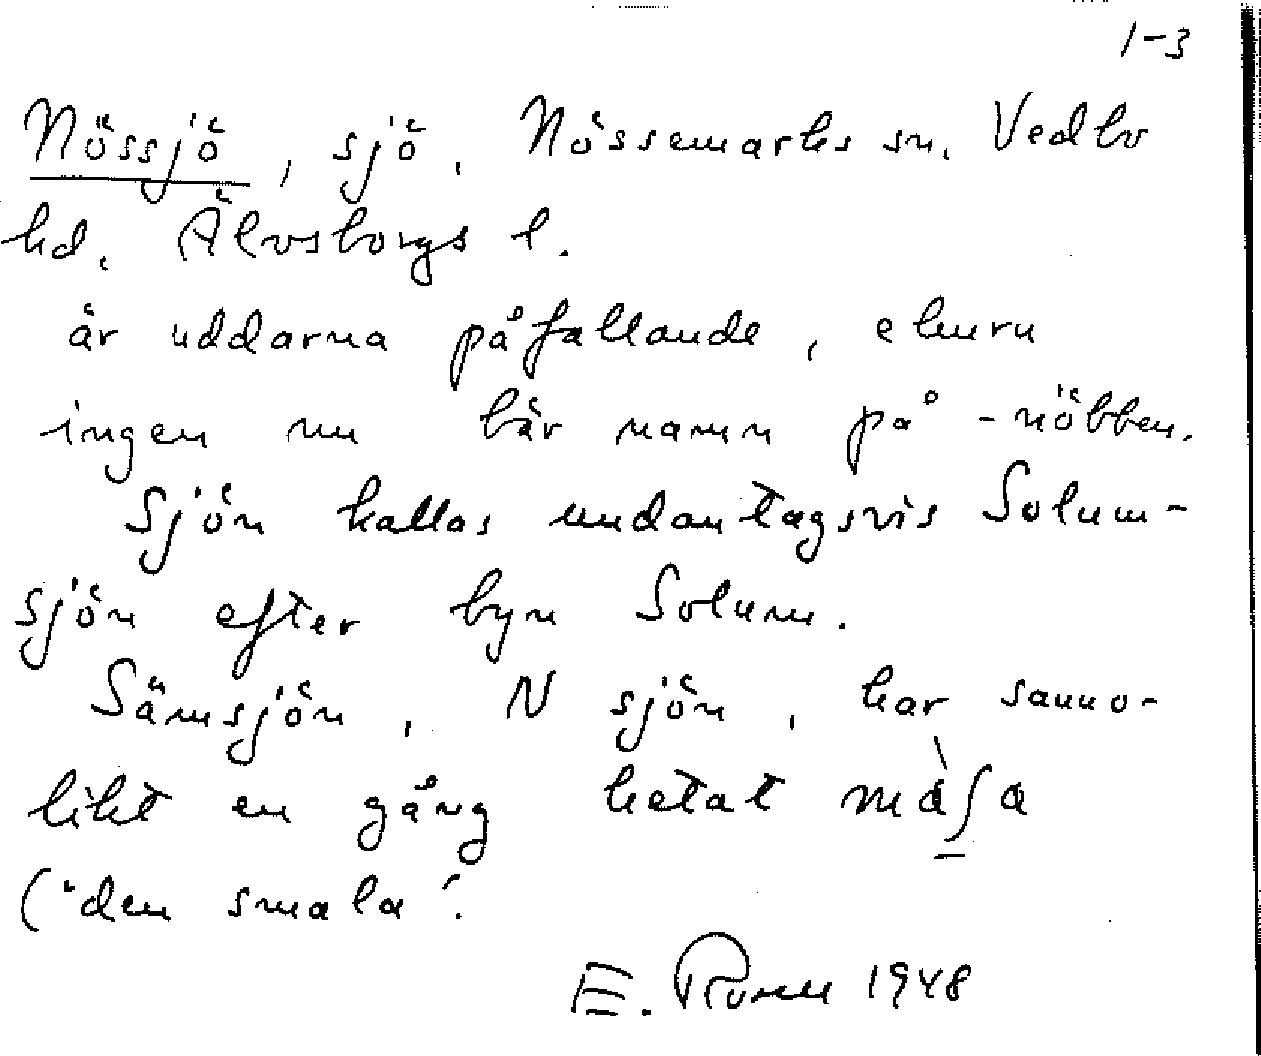 1-3
Nössjö, sjö, Nössemarks sn. Vedbo
hd. Älvsborgs l.
är uddarna påfallande, ehuru
ingen nu bär namn på -nöbben.
Sjön kallas undantagsvis Solum-
sjön efter byn Solum.
Sämsjön, N sjön, har sanno-
likt en gång hetat
("den smala".
E. 1948